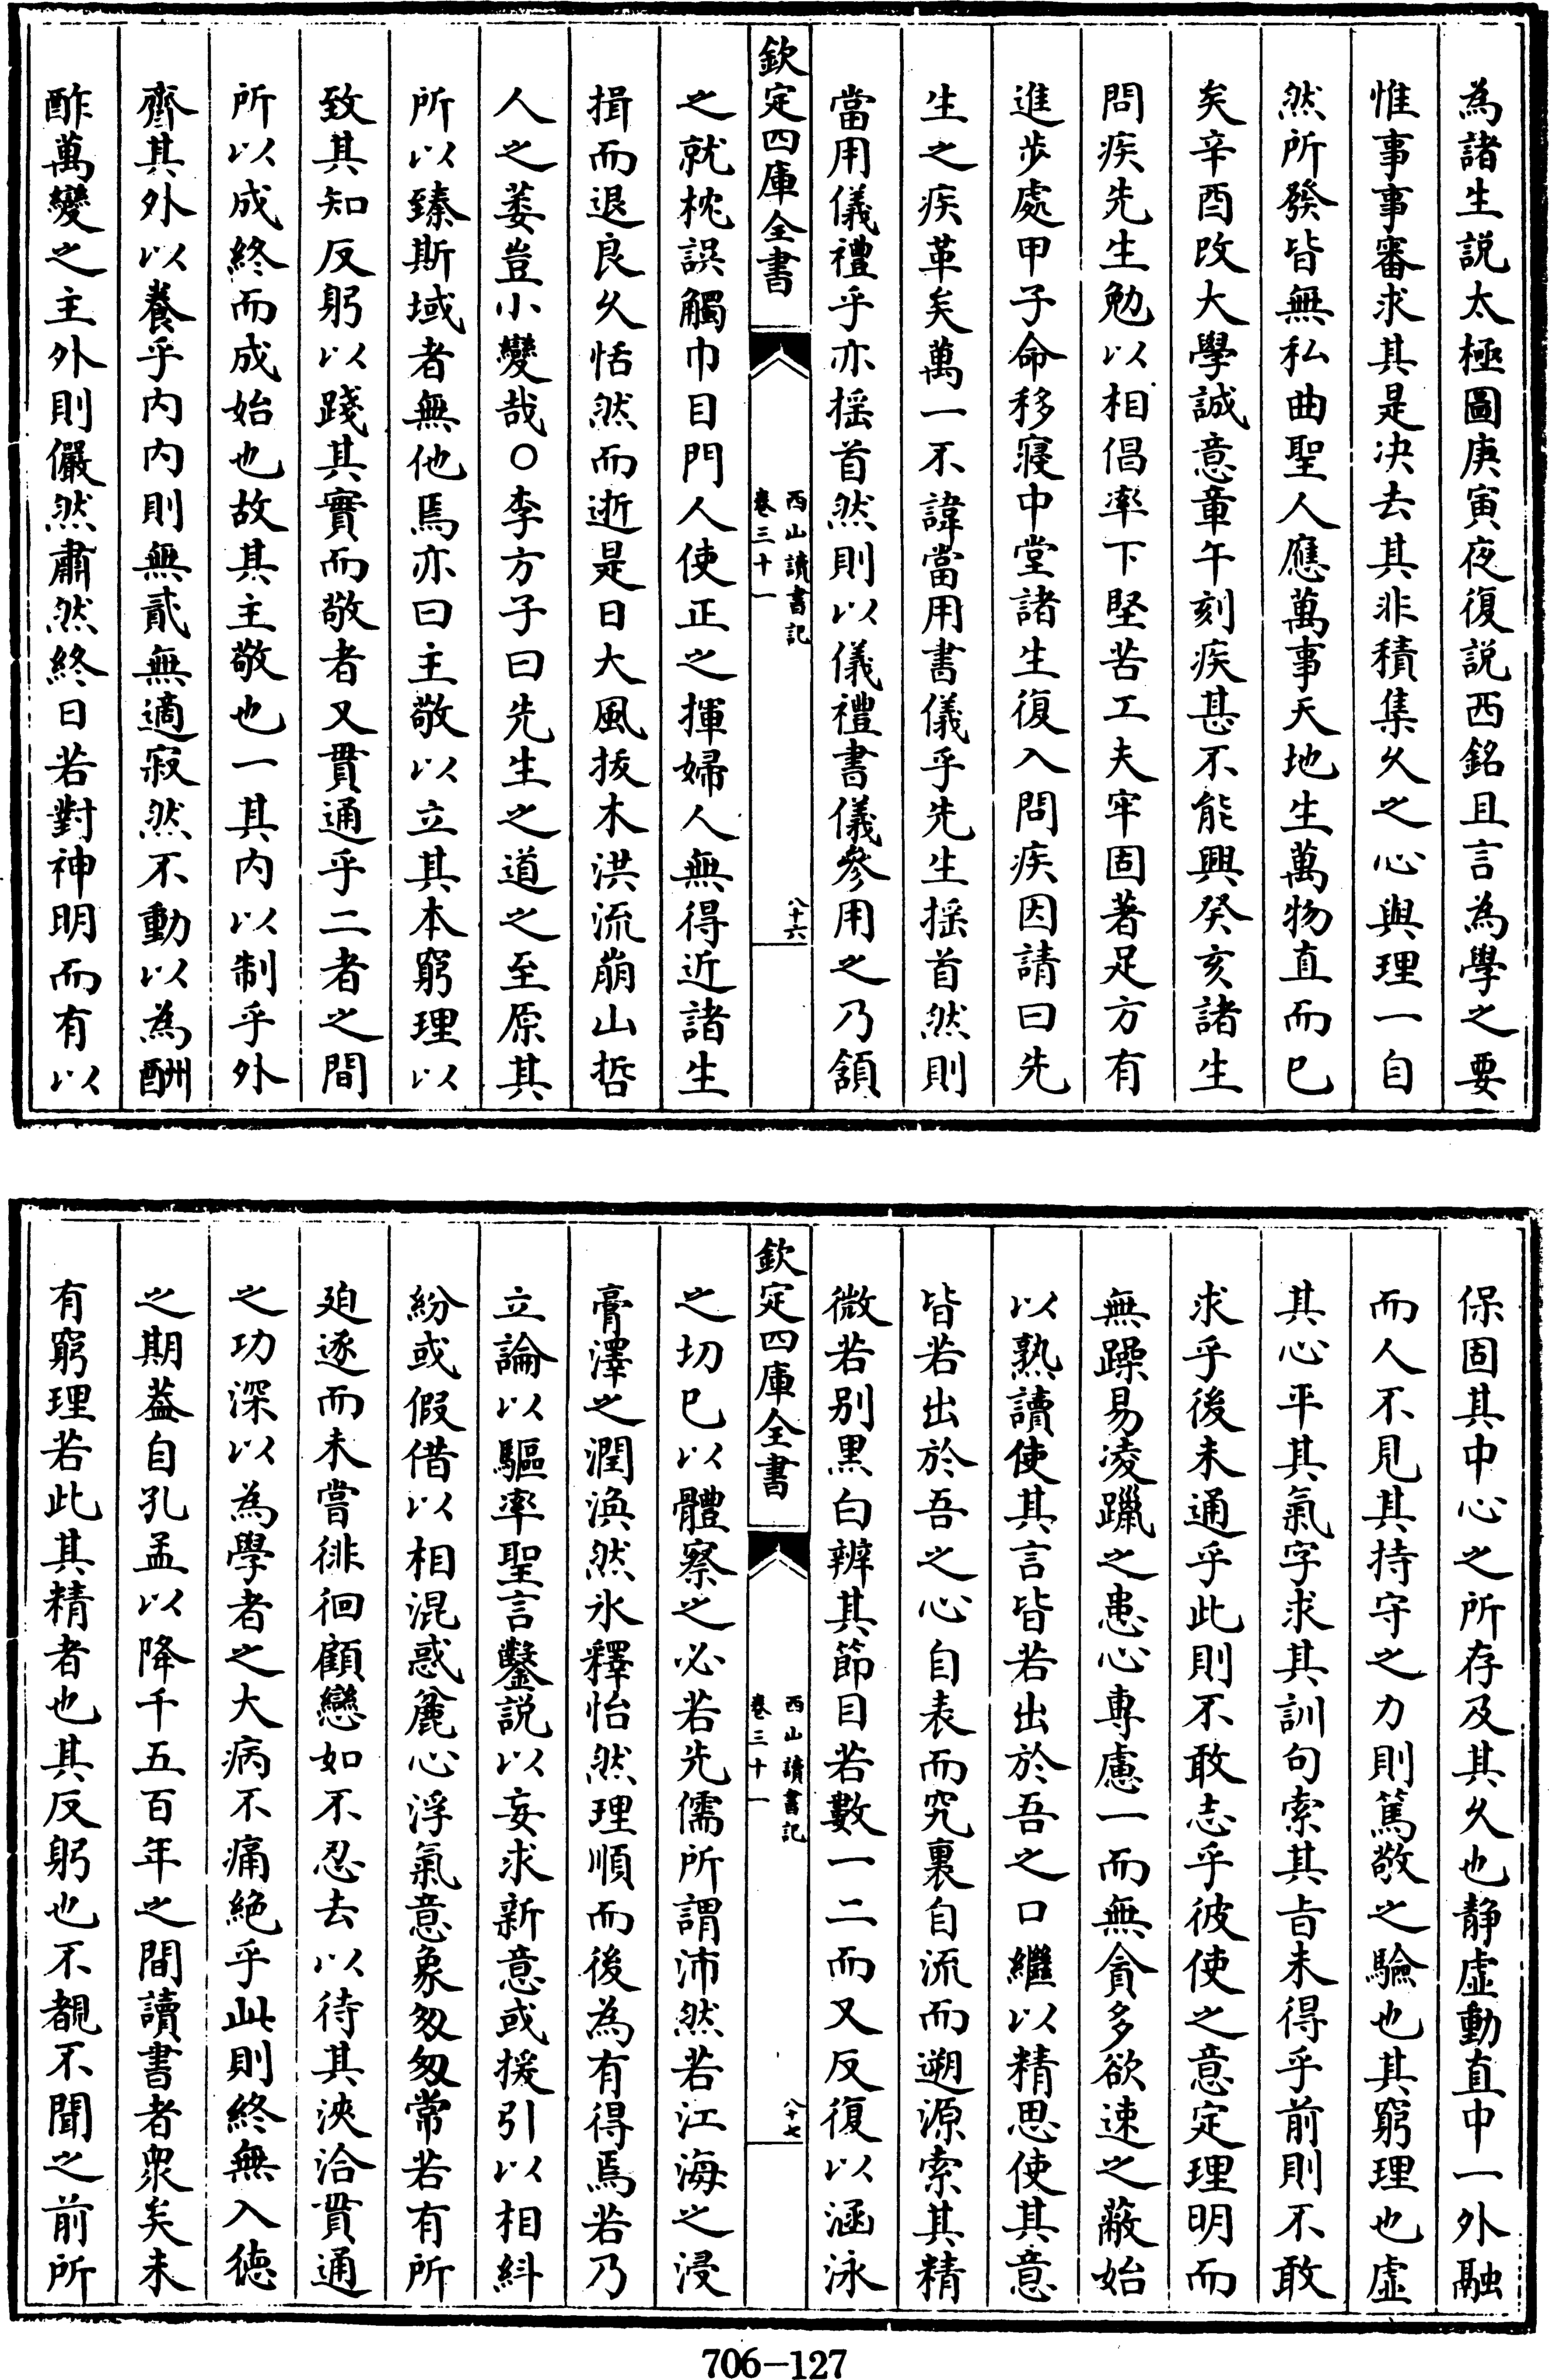 為諸生説太極圖庚寅夜復説西銘且言為學之要
惟事事審求其是决去其非積集久之心與理一自
然所發皆無私曲聖人應萬事天地生萬物直而已
矣辛酉改大學誠意章午刻疾甚不能興癸亥諸生
問疾先生勉以相倡率下堅苦工夫牢固著足方有
進步處甲子命移寢中堂諸生復入問疾因請曰先
生之疾革矣萬一不諱當用書儀乎先生揺首然則
當用儀禮乎亦揺首然則以儀禮書儀參用之乃頷
欽定四庫全書
西山讀書記
卷三十一
八十六
之就枕誤觸巾目門人使正之揮婦人無得近諸生
揖而退良久恬然而逝是日大風拔木洪流崩山哲
人之萎豈小變哉○李方子曰先生之道之至原其
所以臻斯域者無他焉亦曰主敬以立其本窮理以
致其知反躬以踐其實而敬者又貫通乎二者之間
所以成終而成始也故其主敬也一其内以制乎外
齊其外以養乎内内則無貳無適寂然不動以為酬
酢萬變之主外則儼然肅然終日若對神明而有以
保固其中心之所存及其久也静虚動直中一外融
而人不見其持守之力則篤敬之驗也其窮理也虚
其心平其氣字求其訓句索其旨未得乎前則不敢
求乎後未通乎此則不敢志乎彼使之意定理明而
無躁易凌躐之患心専慮一而無貪多欲速之蔽始
以熟讀使其言皆若出於吾之口繼以精思使其意
皆若出於吾之心自表而究裏自流而遡源索其精
微若别黒白辨其節目若數一二而又反復以涵泳
欽定四庫全書
西山讀書記
卷三十一
八十七
之切已以體察之必若先儒所謂沛然若江海之浸
膏澤之潤渙然氷釋怡然理順而後為有得焉若乃
立論以驅率聖言鑿説以妄求新意或援引以相糾
紛或假借以相混惑麄心浮氣意象匆匆常若有所
廹逐而未嘗徘徊顧戀如不忍去以待其浹洽貫通
之功深以為學者之大病不痛絶乎此則終無入徳
之期葢自孔孟以降千五百年之間讀書者衆矣未
有窮理若此其精者也其反躬也不覩不聞之前所
706-127